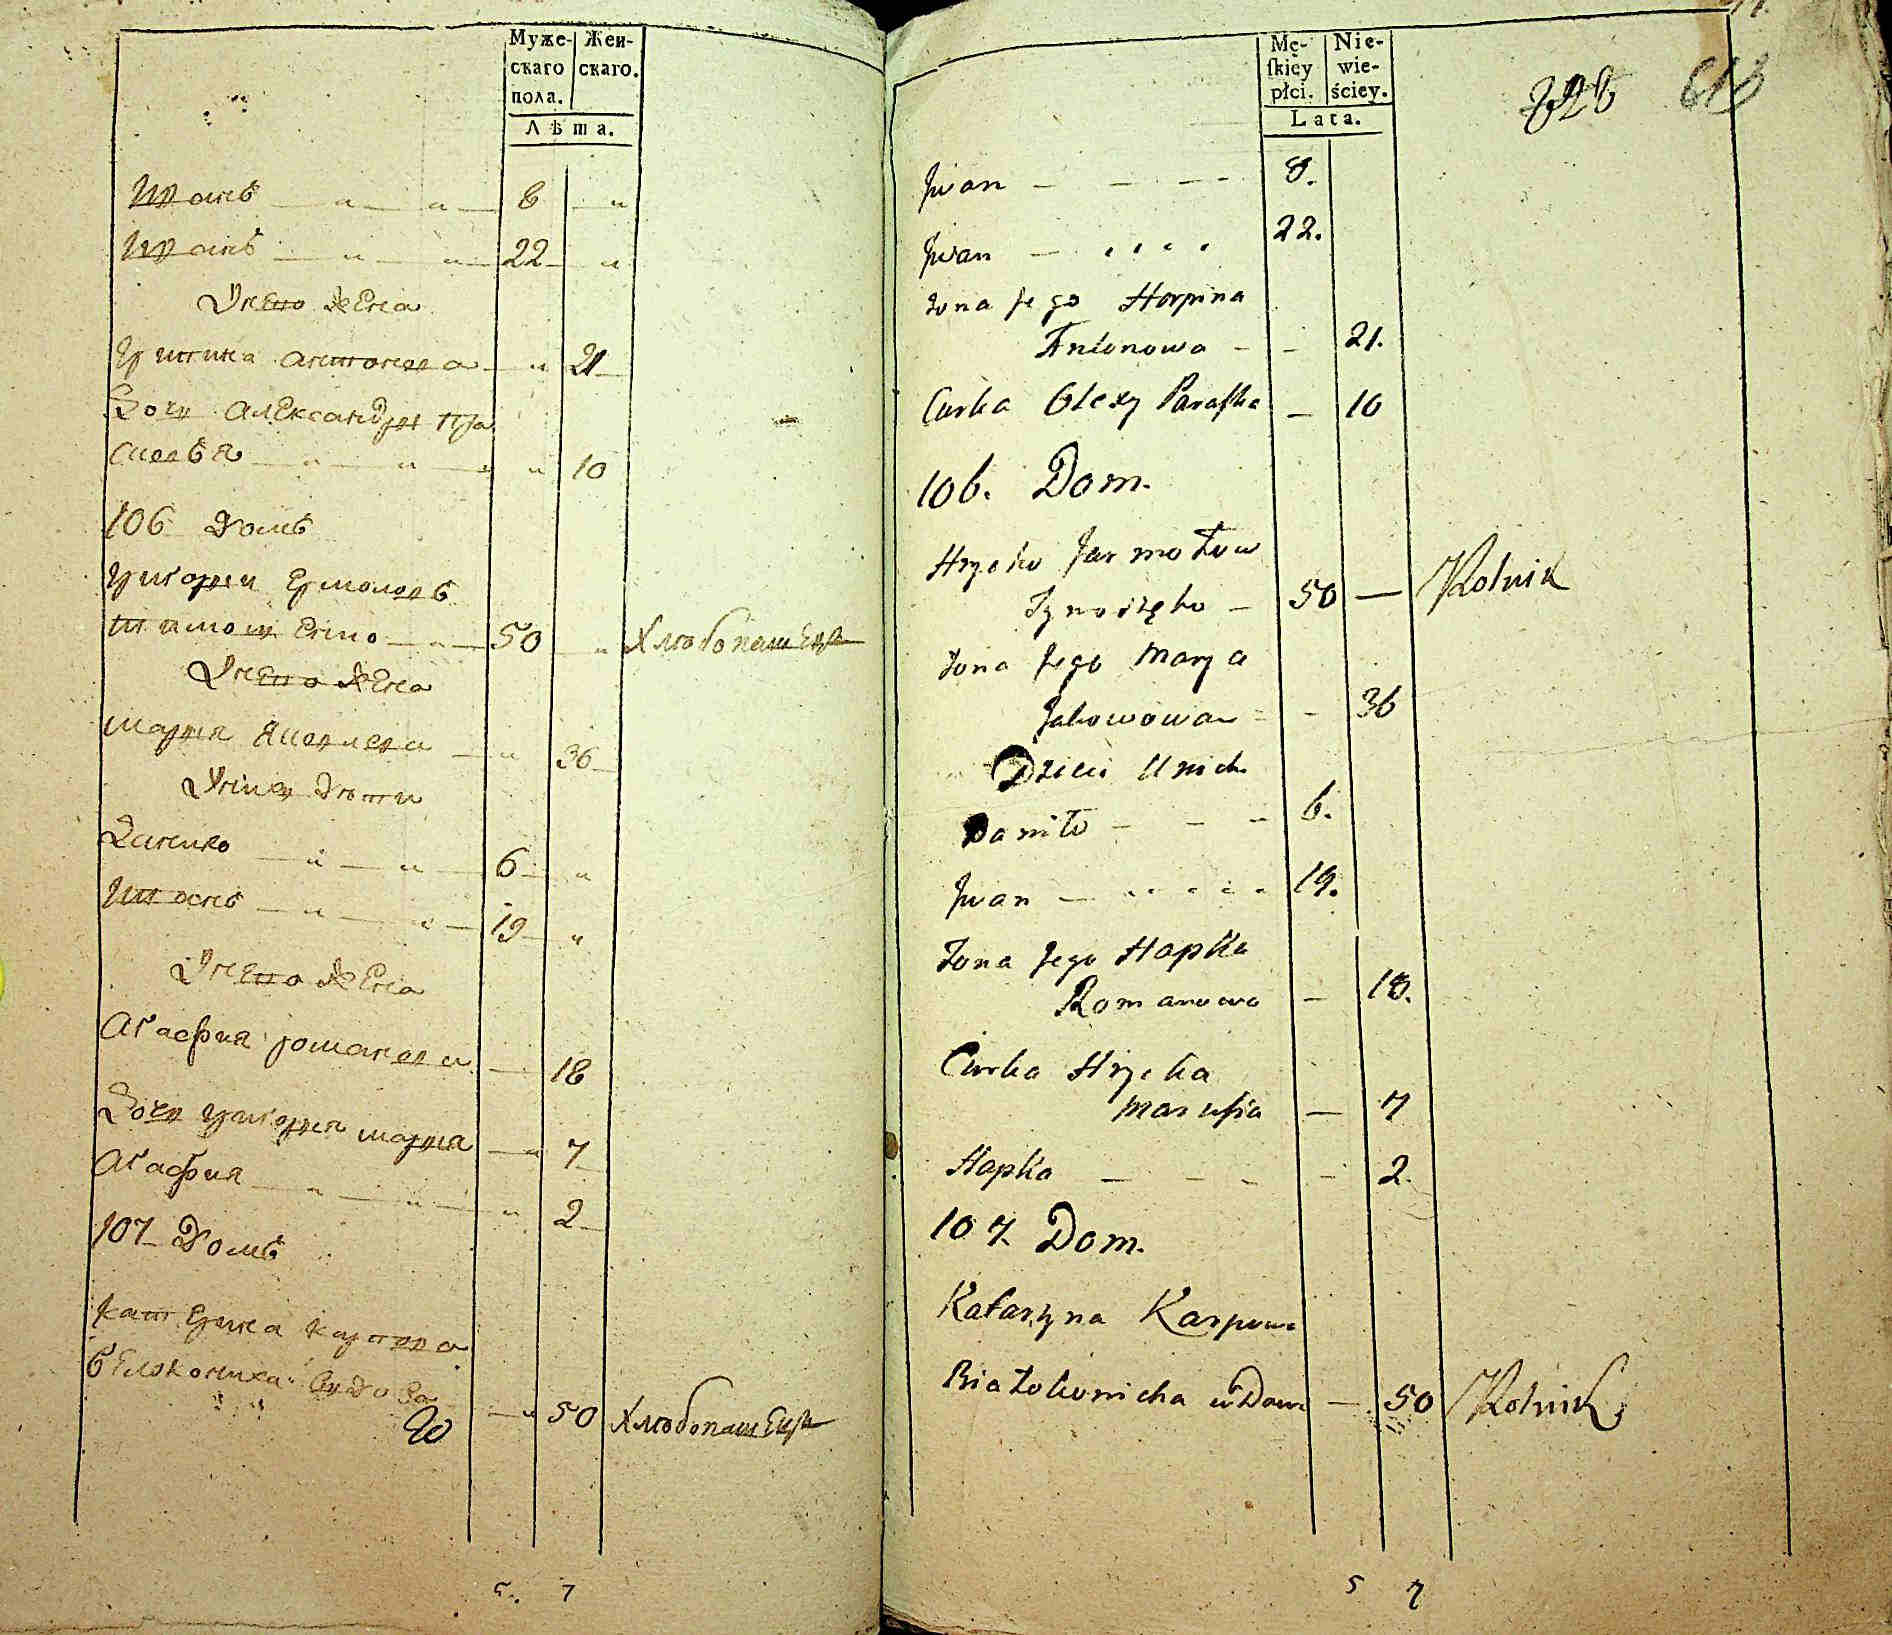 Муже- Жен-
скаго скаго.
пола.
Лѣта.
Иванъ 8
Иванъ 22
Жена
антонова 21
Дочь Александра Пра
сковья 10
106 Домъ
Григорей Ермоловъ
50 Хлѣбопашецъ
Жена
Марья Яковлева 36
Дѣти
Данило 6
Иванъ 19
Жена
Агафия романова 18
Дочь григорья марья 7
Агафия 2
107 Домъ
Катерина карпова
белокониха вдова
50 Хлѣбопашецъ
5. 7
Mę- Nie-
skiey wie-
płci. ściey.
Lata.
613
Jwan 8.
Jwan 22.
Żona Jego Horpina
Antonowa 21.
Curka Olexy Paraska 10
106. Dom.
Hryćko Jarmołow
50 Rolnik
Żona Jego Marya
Jakowowa 36
Dzieci U nich
Daniło 6.
Jwan 19.
Żona Jego Hapka
Romanowa 18.
Curka Hryćka
Marusia 7
Hapka 2.
107. Dom.
Katarzyna Karpowa
Białokonicha wDowa 50 Rolnik
5 7